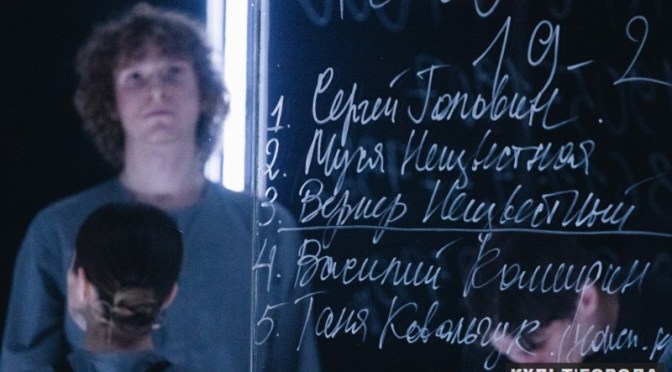 19-2
1. Сергей Головин.
2. Муся Неизвестная
3. Вернер Неизвестный
4. Василий Каширин
5. Таня Ковальчук.
КУЛЬТ ГОРОДА